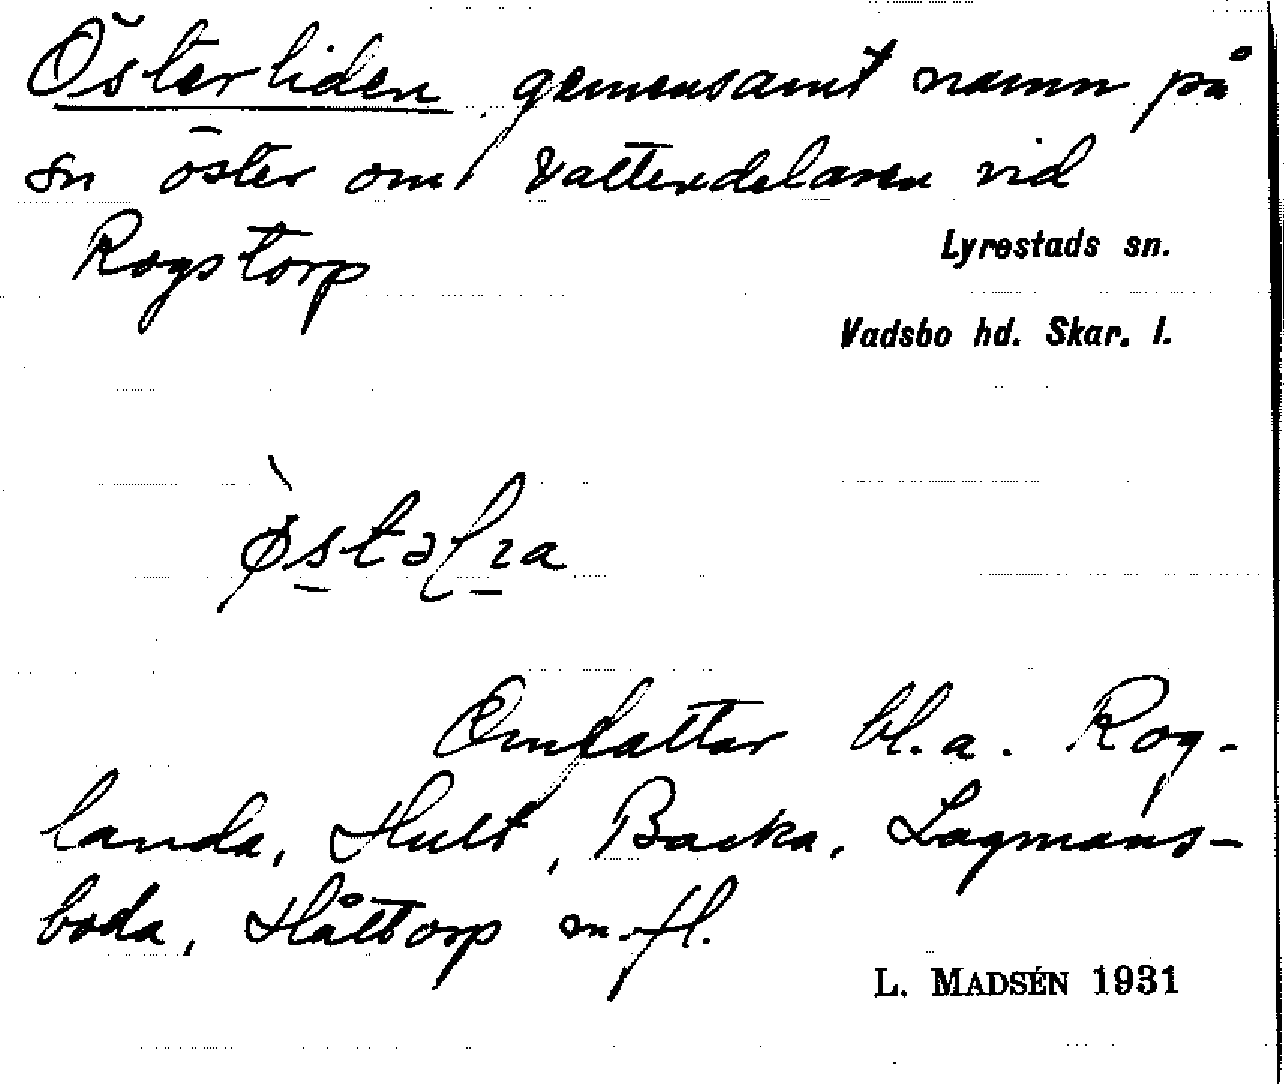 Österliden gemensamt namn på
sn öster om vattendelaren vid
Rogstorp
Lyrestads sn.
Vadsbo hd. Skar. l.
Omfattar bl.a. Rog-
landa, Hult, Backa, Lagmans-
boda, Håltorp m.fl.
L. MADSÉN 1931